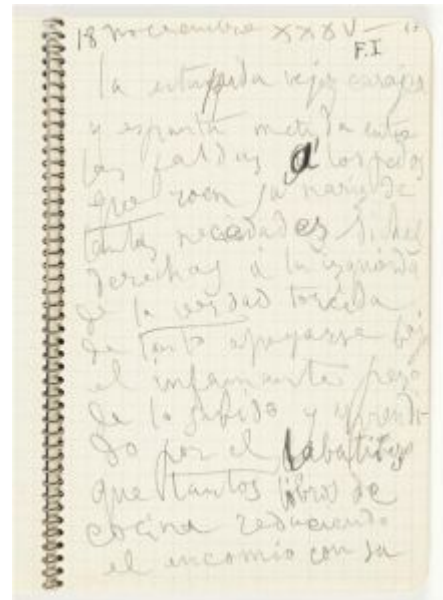 18 noviembre XXXV
F.I
la estupida vejez
y metida entre
las faldas a los pedos
que roen su nariz de
tantas necedades dichas
derechas á la izquierda
de la verdad torcida
de tanto apoyarse bajo
el infamante peso
de lo sabido y aprendi-
do por el
que tantos libros de
cocina reduciendo
el encomio con su